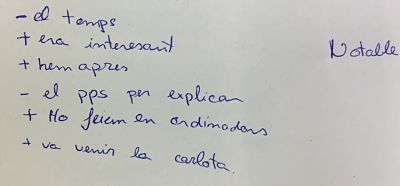 - el temps
+ era interesant
+ hem apres
- el pps per explicar
+ Ho feiem en ordinadors
+ va venir la carlota.
Notable